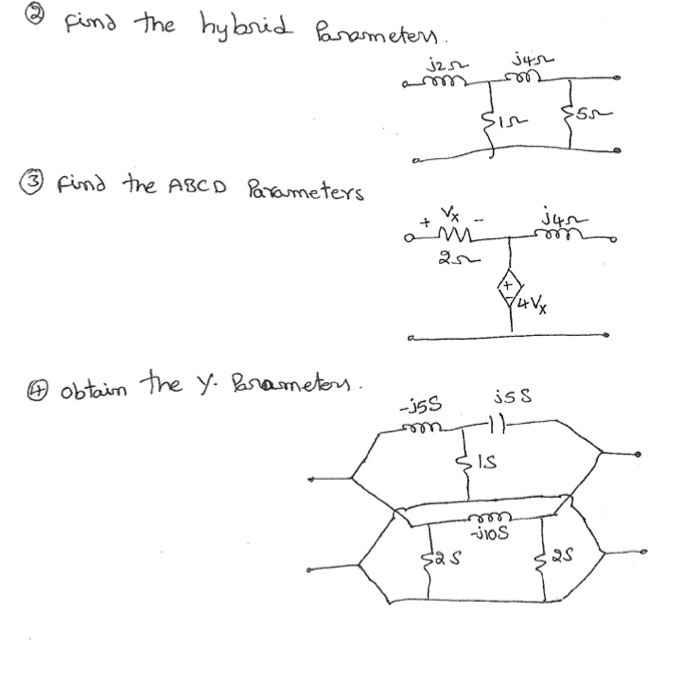 ② Find the hybrid Parameters.
j2Ω j4Ω
1Ω 5Ω
③ Find the ABCD Parameters
+ Vx - j4Ω
2Ω
+
-
4Vx
④ obtain the y- Parameters.
-j5S j5S
1S
-j10S
2S 2S